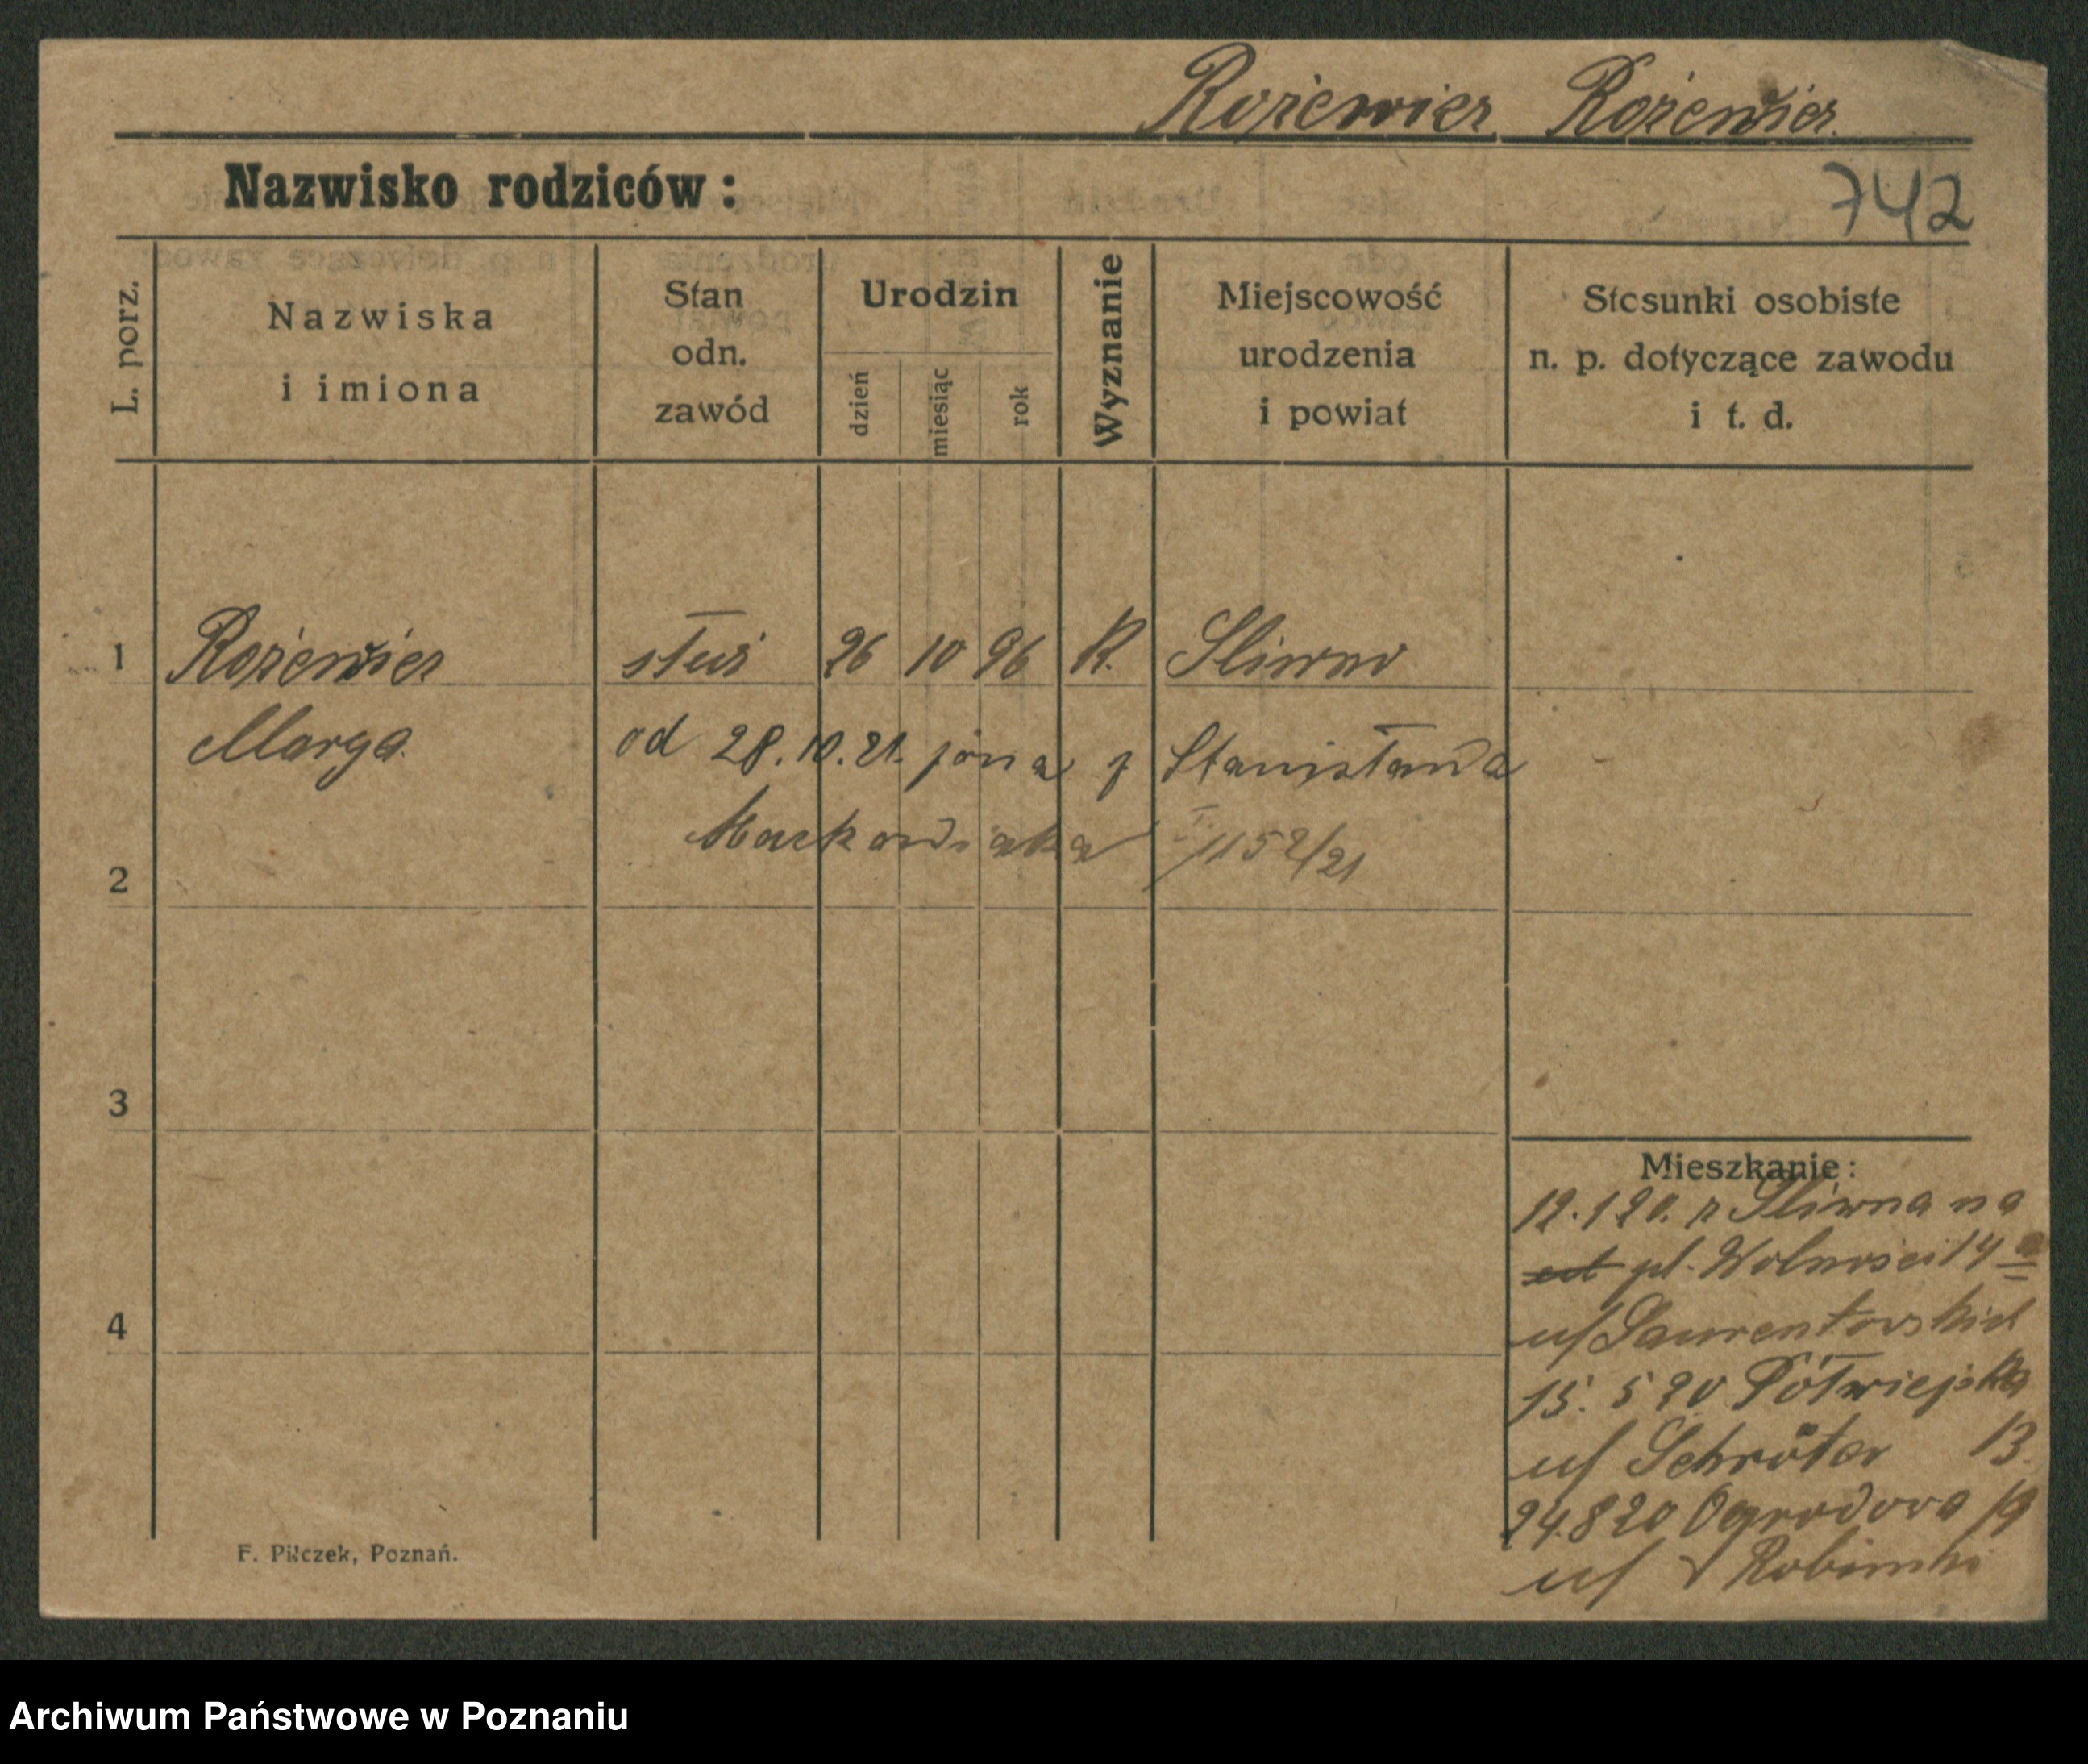 Rożewier Rożewier.
Nazwisko rodziców:
742
L. porz.
Nazwiska
i imiona
Stan
odn.
zawód
Urodzin
dzień
miesiąc
rok
Wyznanie
Miejscowość
urodzenia
i powiat
Stosunki osobiste
n. p. dotyczące zawodu
i t. d.
1 Rożewier służ 26 10 96 K. Sliwno
Marga.
od 28.10.21. żona Stanisława
Maćkowiaka 1152/21
2
3
4
Mieszkanie:
12.1.20. z Sliwna na
pl. Wolności 14
u/
15.5 20 Półwiejska
u/ Schröter 13.
24.8 20 Ogrodowa 19
u/
F. Pilczek, Poznań.
Archiwum Państwowe w Poznaniu